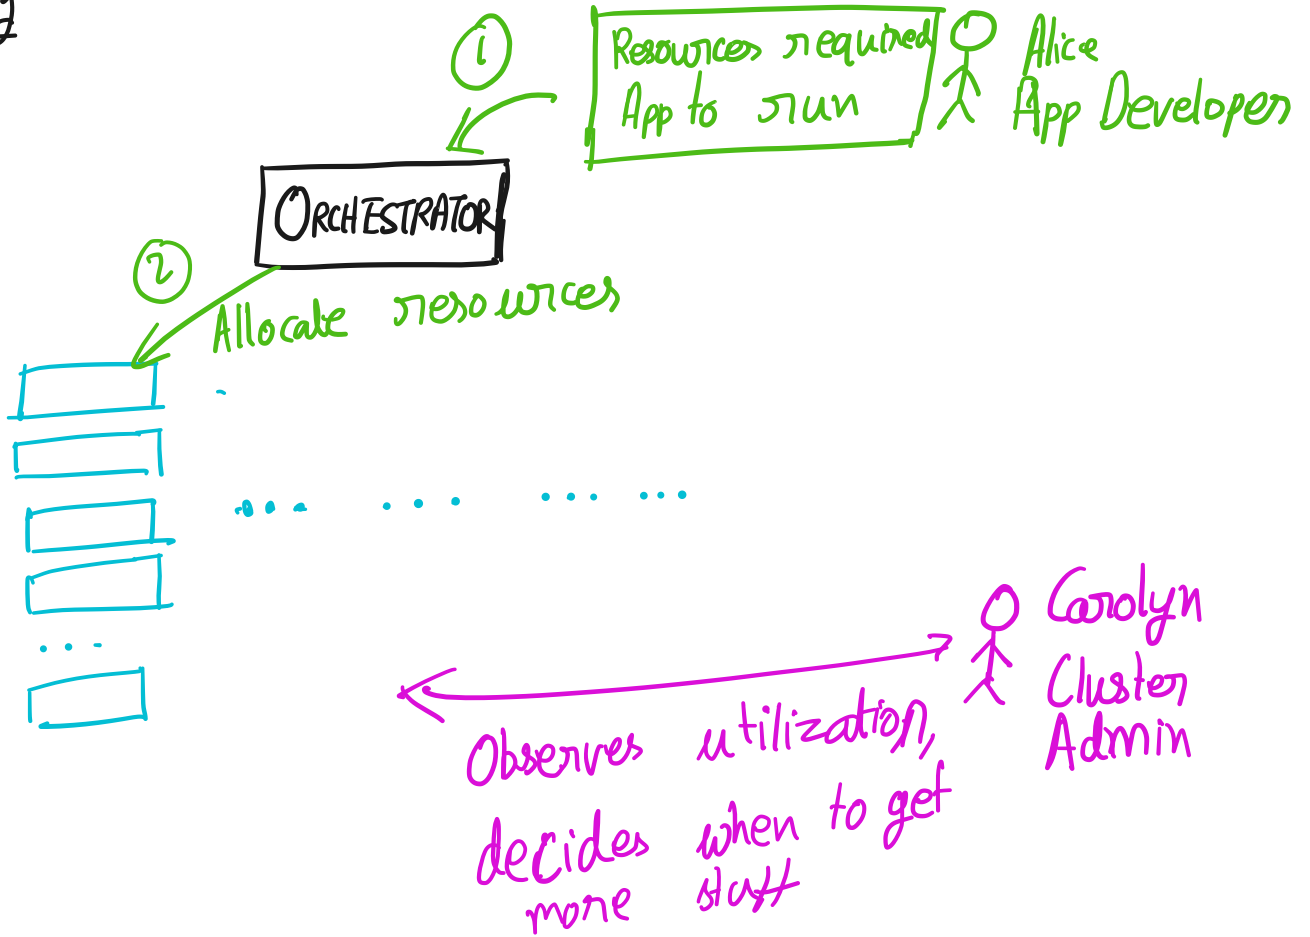 1
Resources required
App to run
Alice
App Developer
ORCHESTRATOR
2
Allocate resources
Carolyn
Cluster
Admin
Observes utilization,
decides when to get
more stuff